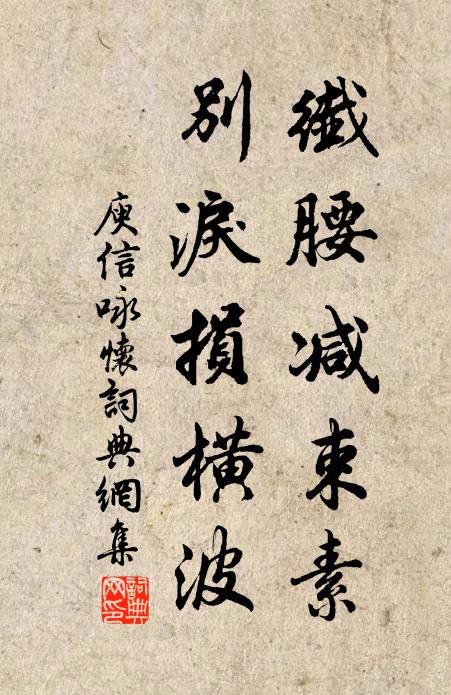 纖腰减束素
別淚損橫波
庾信咏懷詞典網集
詞典網印